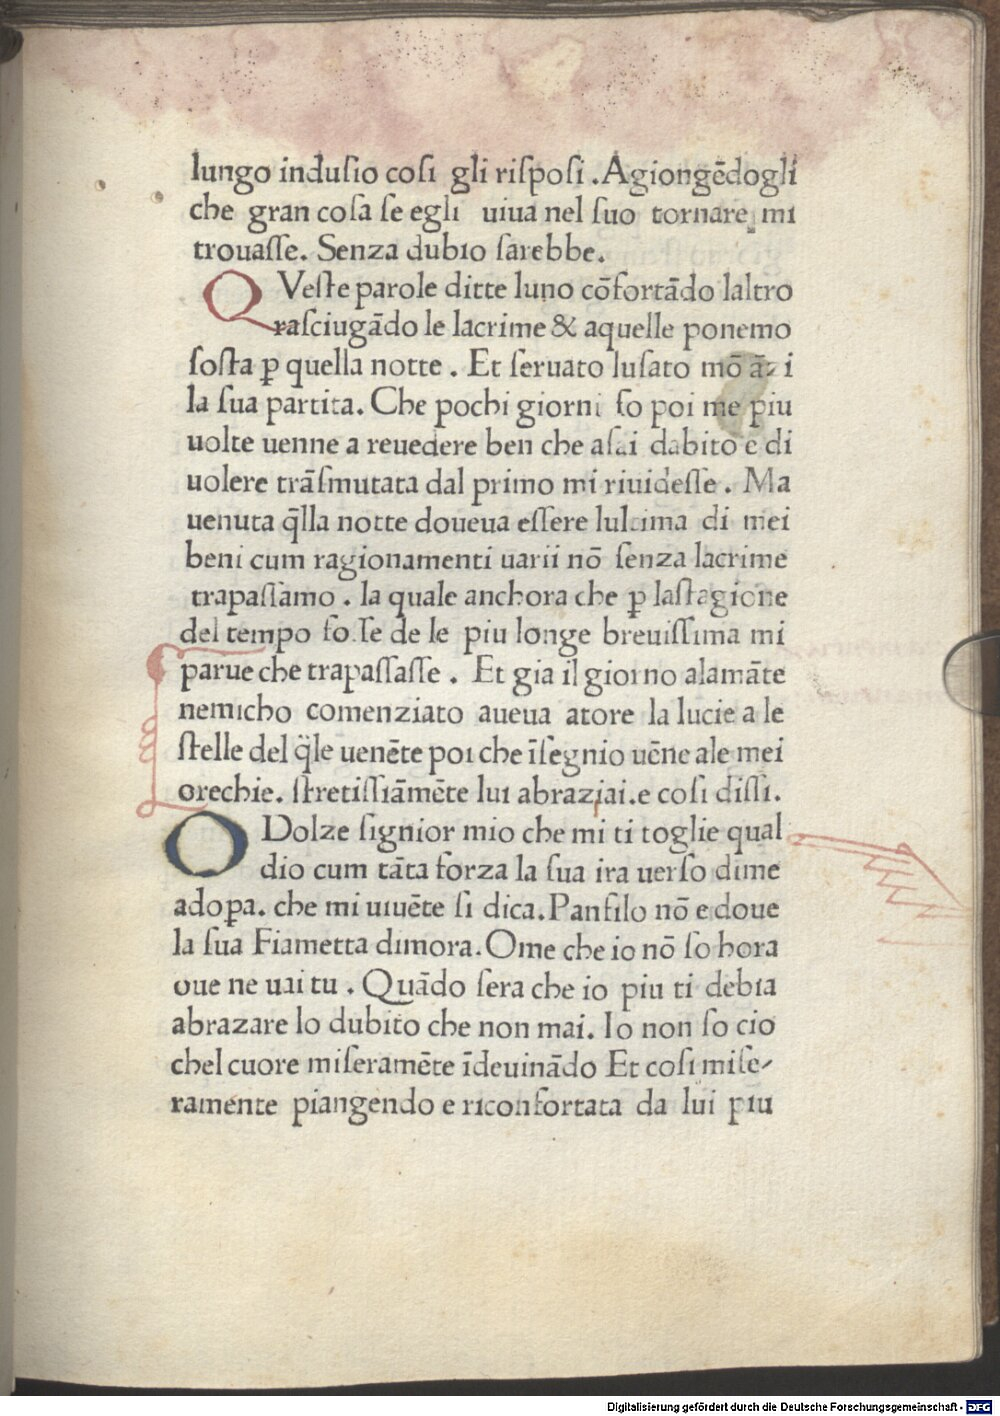 lungo induſio coſi gli riſpoſi .Agiongēdogli
che gran coſa ſe egli uiua nel ſuo tornare mi
trouaſſe. Senza dubio ſarebbe.
QVeſte parole ditte luno cōfortādo laltro
raſciugādo le lacrime & aquelle ponemo
ſoſta ꝑ quella notte . Et ſeruato luſato mō āzi
la ſua partita. Che pochi giorni fo poi me piu
uolte uenne a reuedere ben che aſai dabito e di
uolere trāſmutata dal primo mi riuideſſe . Ma
uenuta q̄lla notte doueua eſſere lultima di mei
beni cum ragionamenti uarii nō ſenza lacrime
trapaſſamo . la quale anchora che ꝑ laſtagione
del tempo foſſe de le piu longe breuiſſima mi
parue che trapaſſaſſe . Et gia il giorno alamāte
nemicho comenziato aueua atore la lucie a le
ſtelle del q̄le uenēte poi che īſegnio uēne ale mei
orechie. ſtretiſſiāmēte lui abraziai.e coſi diſſi.
O Dolze ſignior mio che mi ti toglie qual
dio cum tāta forza la ſua ira uerſo dime
adoꝑa. che mi uiuēte ſi dica.Panfilo nō e doue
la ſua Fiametta dimora.Ome che io nō ſo hora
oue ne uai tu . Quādo ſera che io piu ti debia
abrazare lo dubito che non mai. Io non ſo cio
chel cuore miſeramēte īdeuinādo Et coſi miſe-
ramente piangendo e riconfortata da lui piu
Digitalisierung gefördert durch die Deutsche Forschungsgemeinschaft - DFG